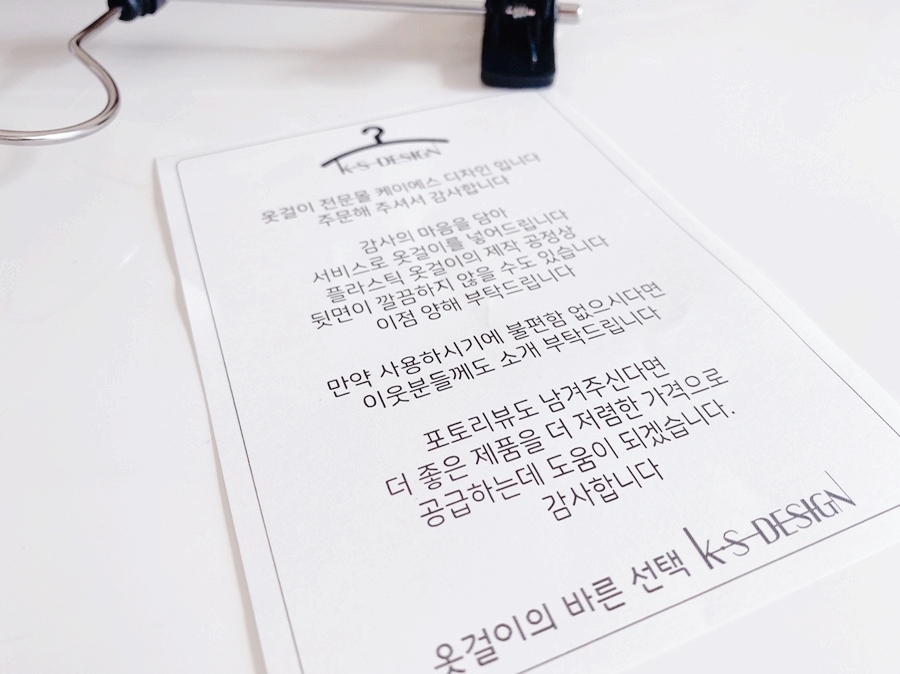 K-S-DESIGN
옷걸이 전문몰 케이에스 디자인 입니다
주문해 주셔서 감사합니다
감사의 마음을 담아
서비스로 옷걸이를 넣어드립니다
플라스틱 옷걸이의 제작 공정상
뒷면이 깔끔하지 않을 수도 있습니다
이점 양해 부탁드립니다
만약 사용하시기에 불편함 없으시다면
이웃분들께도 소개 부탁드립니다
포토리뷰도 남겨주신다면
더 좋은 제품을 더 저렴한 가격으로
공급하는데 도움이 되겠습니다.
감사합니다
옷걸이의 바른 선택 K-S-DESIGN